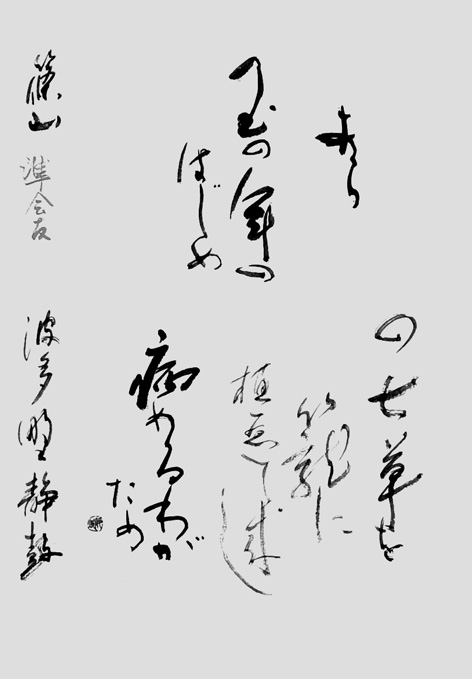 あら
玉の年の
はじめ
の七草を
籠に
植ゑて来し
病めるわが
ため
篠山 準会友 波多野静鼓